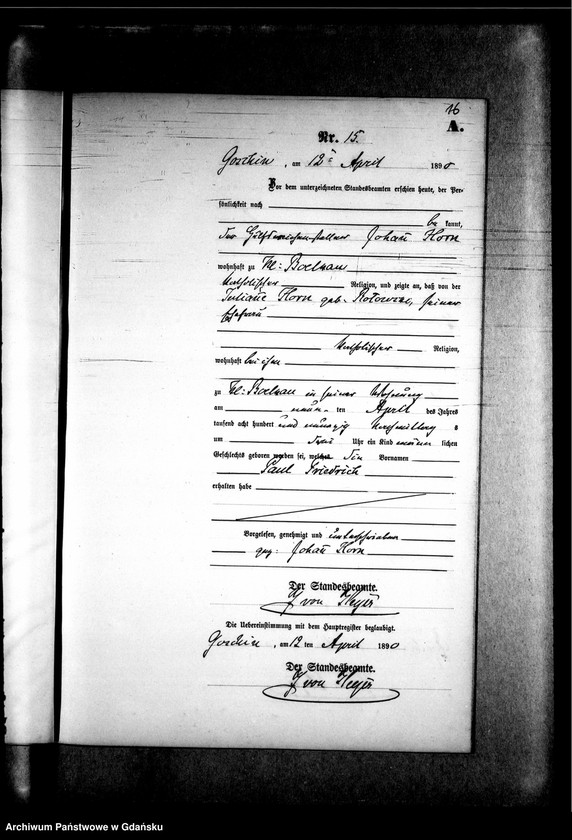 16
A.
Nr. 15.
Goschin, am 12ten April 1890
Vor dem unterzeichneten Standesbeamten erschien heute, der Per-
sönlichkeit nach
be kannt,
der Johann Horn
wohnhaft zu Kl: Boelkau
katholischer Religion, und zeigte an, daß von der
Juliane Horn geb. seiner
Ehefrau
katholischer Religion,
wohnhaft bei ihm
zu Kl: Boelkau in seiner Wohnung
am neun ten April des Jahres
tausend acht hundert und neunzig Nachmittag s
um drei Uhr ein Kind männ lichen
Geschlechts geboren worden sei, welches den Vornamen
Paul Friedrich
erhalten habe
Vorgelesen, genehmigt und unterschrieben
gez: Johann Horn
Der Standesbeamte.
von Heyer
Die Uebereinstimmung mit dem Hauptregister beglaubigt.
Goschin, am 12 ten April 1890
Der Standesbeamte.
von Heyer
Archiwum Państwowe w Gdańsku